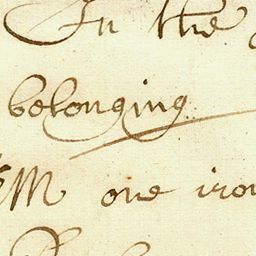 In the
belonging
M one iron